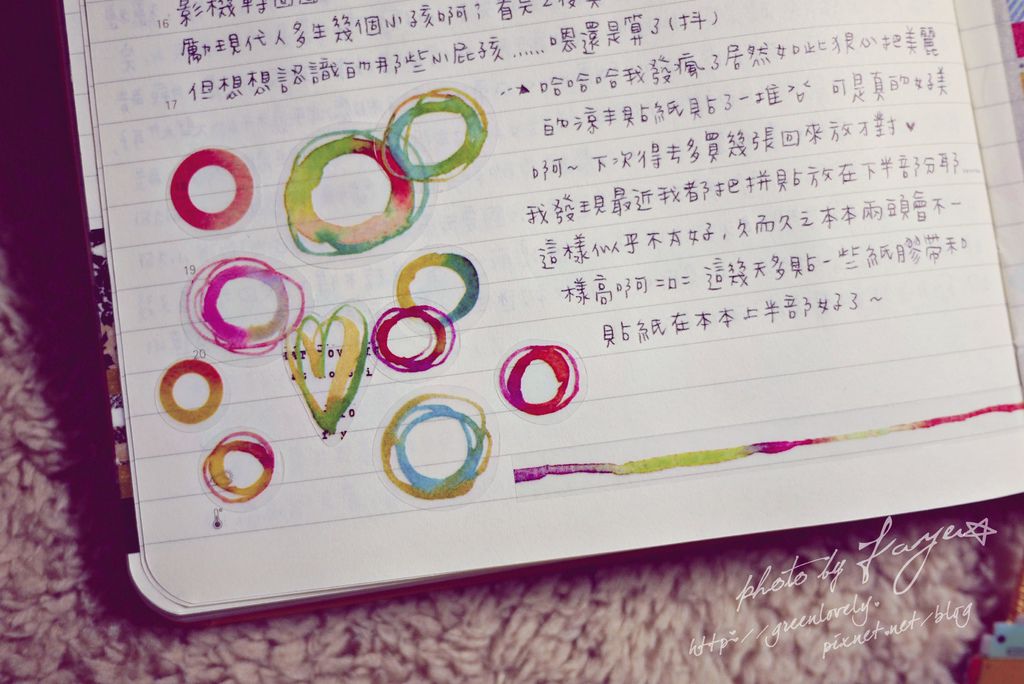 16
勵現代人多生幾個小孩啊?有完之後
17 但想想認識的那些小屁孩......嗯還是算了(抖)
哈哈哈我發瘋了居然如此狠心把美麗
的涼丰貼紙貼了一堆 可是真的好美
啊~ 下次得去多買幾張回來放才對♥
我發現最近我都把拼貼放在下半部分耶......
這樣似乎不太好,久而久之本本兩頭會不一
樣高啊=口= 這幾天多貼一些紙膠帶和
貼紙在本本上半部好了~
19
20
photo by Faye☆
http://greenlovely.
pixnet.net/blog